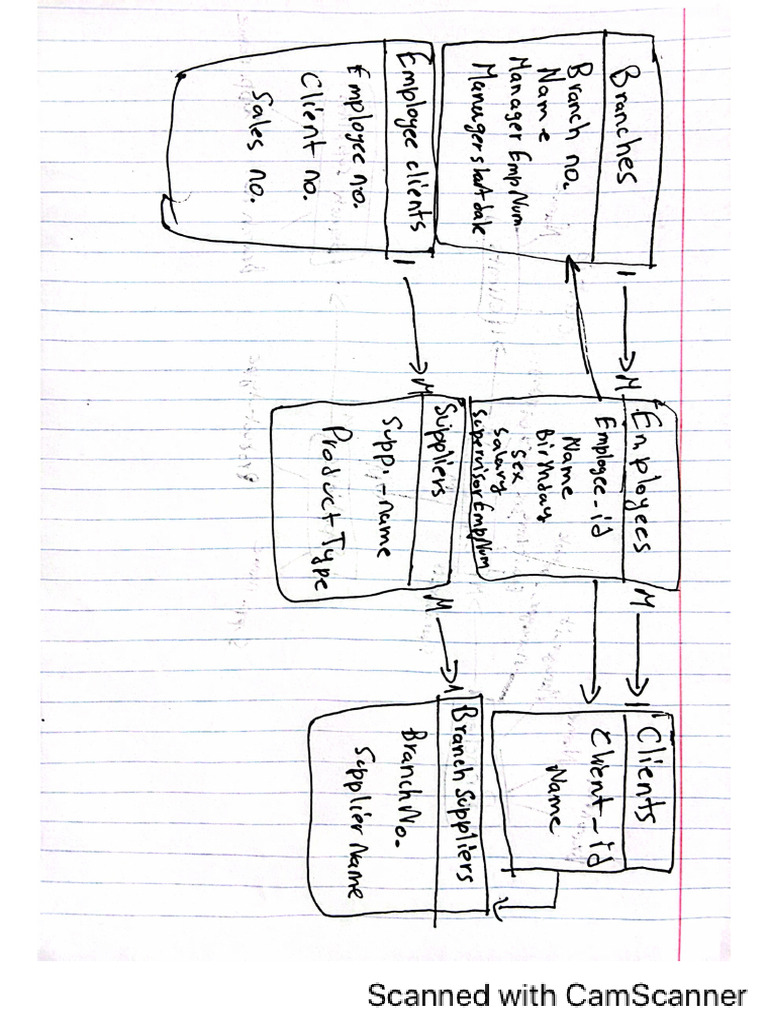 Branches
Branch no.
Name
Manager EmpNum
Managerstartdate
1
M
Employees
Employee_id
Name
Birthday
sex
salary
supervisorEmpNum
M
1
Clients
Client_id
Name
Employee clients
Employee no.
Client no.
Sales no.
1
M
Suppliers
Supp. -name
Product Type
M
1
Branch Suppliers
Branch No.
Supplier Name
Scanned with CamScanner